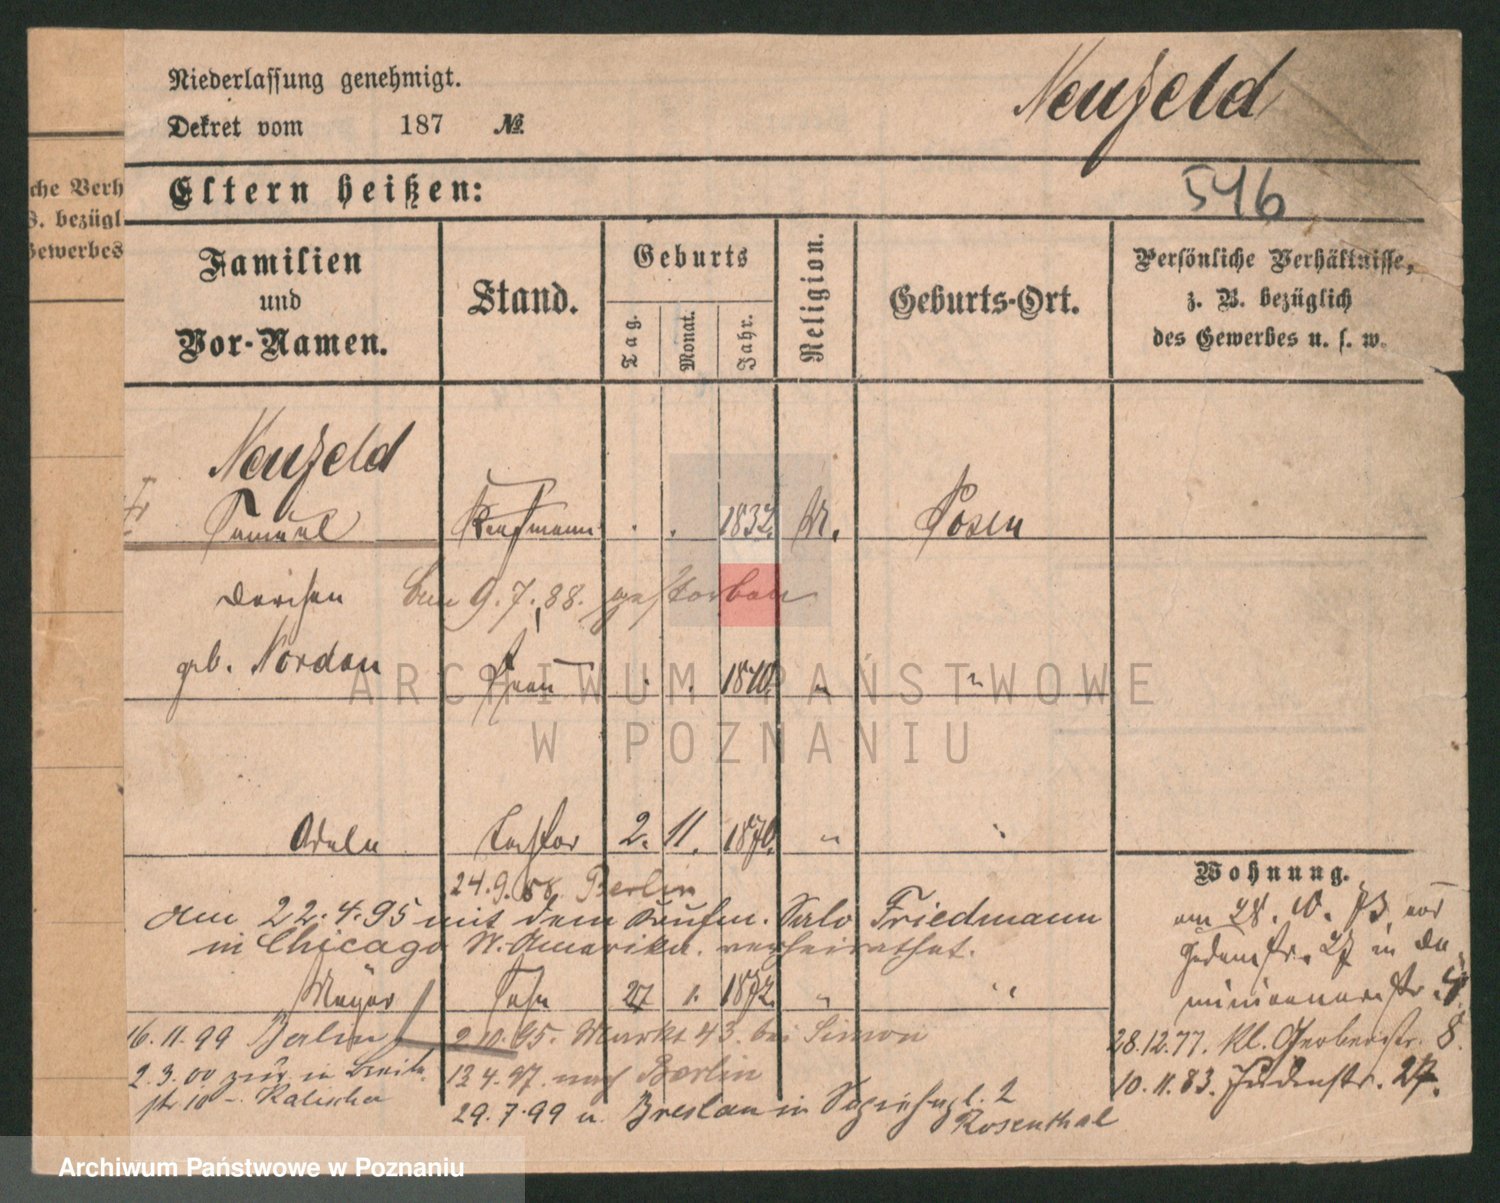 Niederlassung genehmigt.
Dekret vom 187 №
Neufeld
Eltern heißen:
546
che Verh
B. bezügl
Gewerbes
Familien
und
Vor-Namen.
Stand.
Geburts
Tag.
Monat.
Jahr.
Religion.
Geburts-Ort.
Persönliche Verhältnisse,
z. B. bezüglich
des Gewerbes u. s. w.
Neufeld
Samuel Kaufmann . . 1832. M. Posen
Dorchen 9.7.88. gestorben
geb. Nordon Frau . . 1840. " "
Adele Tochter 2. 11. 1870. " "
24.9.88. Berlin
Am 22.4.95 mit dem Kaufm. Salo Friedmann
in Chicago N. Amerika. verheirathet.
Meyer Sohn 27 1. 1872. " "
16.11.99 Berlin 2.10.95. Markt 43. bei Simon
2.3.00 zur. in Breite
str 10 - Kalischer
13.4.97. nach Berlin
29.7.99 u. Breslau in 2
Rosenthal
Wohnung.
am 28. 10. 73 von
27 in Do
minicanerstr. 4.
28.12.77. Kl. Gerberstr. 8.
10.11.83. Judenstr. 27.
ARCHIWUM PAŃSTWOWE
W POZNANIU
Archiwum Państwowe w Poznaniu